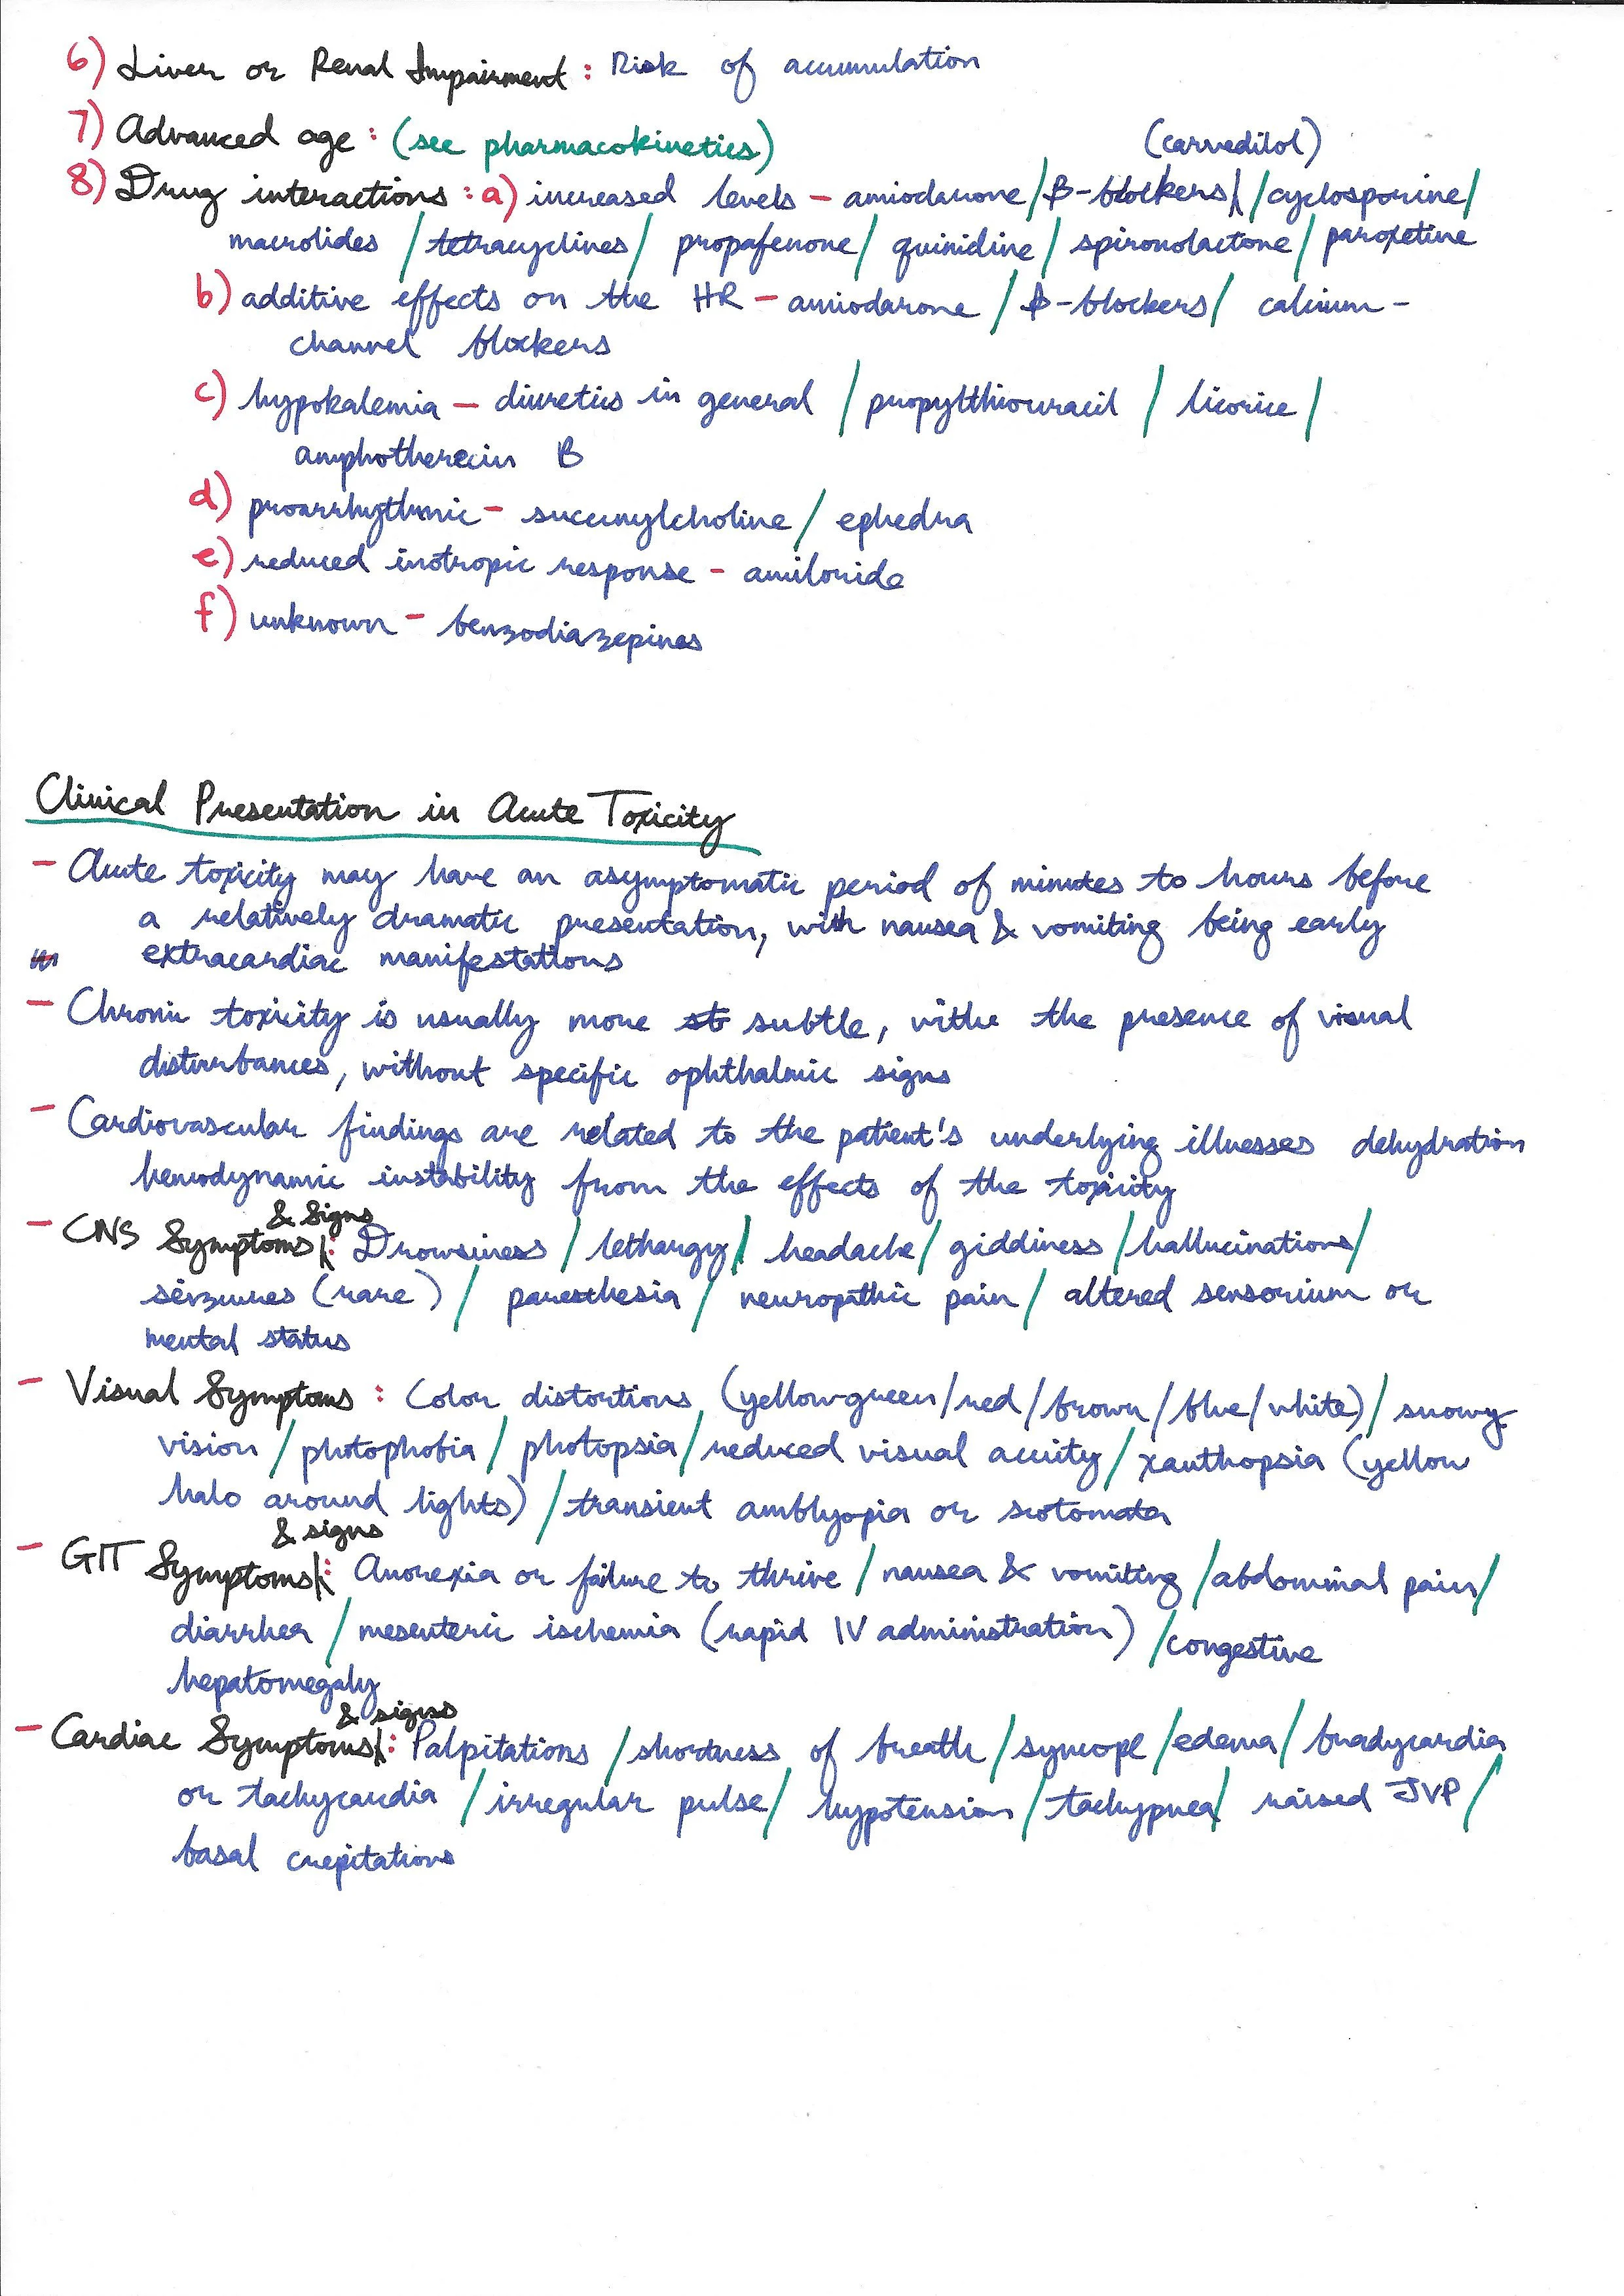 6) Liver or Renal Impairment : Risk of accumulation
7) Advanced age : (see pharmacokinetics)
(carvedilol)
8) Drug interactions : a) increased levels – amiodarone / β-blockers / cyclosporine /
macrolides / tetracyclines / propafenone / quinidine / spironolactone / paroxetine
b) additive effects on the HR – amiodarone / β-blockers / calcium-
channel blockers
c) hypokalemia – diuretics in general / propylthiouracil / licorice /
amphotherecin B
d) proarrhythmic – succinylcholine / ephedra
e) reduced inotropic response – amiloride
f) unknown – benzodiazepines
Clinical Presentation in Acute Toxicity
– Acute toxicity may have an asymptomatic period of minutes to hours before
a relatively dramatic presentation, with nausea & vomiting being early
extracardiac manifestations
– Chronic toxicity is usually more subtle, withe the presence of visual
disturbances, without specific ophthalmic signs
– Cardiovascular findings are related to the patient's underlying illnesses dehydration
hemodynamic instability from the effects of the toxicity
& Signs
– CNS Symptoms : Drowsiness / lethargy / headache / giddiness / hallucinations /
seizures (rare) / paresthesia / neuropathic pain / altered sensorium or
mental status
– Visual Symptoms : Color distortions (yellow-green/red/brown/blue/white) / snowy
vision / photophobia / photopsia / reduced visual acuity / xanthopsia (yellow
halo around lights) / transient amblyopia or scotomata
& signs
– GIT Symptoms : Anorexia or failure to thrive / nausea & vomiting / abdominal pain /
diarrhea / mesenteric ischemia (rapid IV administration) / congestive
hepatomegaly
& signs
– Cardiac Symptoms : Palpitations / shortness of breath / syncope / edema / bradycardia
or tachycardia / irregular pulse / hypotension / tachypnea / raised JVP /
basal crepitations